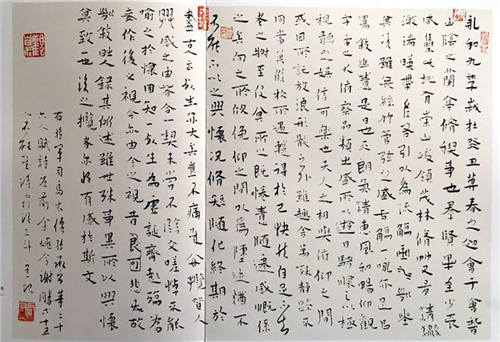 永和九年歲在癸丑暮春之初會于會稽
山陰之蘭亭脩禊事也羣賢畢至少長
咸集此地有崇山峻領茂林脩竹又有清流
激湍暎帶左右引以為流觴曲水列坐
其次雖無絲竹管弦之盛一觴一詠亦足以
暢敘幽情是日也天朗氣清惠風和暢仰觀
宇宙之大俯察品類之盛所以遊目騁懷足以極
視聽之娛信可樂也夫人之相與俯仰之間
或因所託放浪形骸之外雖趣舍萬殊靜躁不
同當其欣於所遇暫得於己快然自足不知
老之將至及其所之既惓情隨事遷感慨係
之矣向之所欣俛仰之間以為陳迹猶不
能不以之興懷況脩短隨化終期於
盡古人云死生亦大矣豈不痛哉每攬昔人
興感之由若合一契未嘗不臨文嗟悼不能
喻之於懷固知一死生為虛誕齊彭殤為
妄作後之視今亦由今之視昔悲夫故
列敘時人錄其所述雖世殊事異所以興懷
其致一也後之攬者亦將有感於斯文
右將軍司馬太傅孫承公等二十
六人賦詩前餘姚令謝勝等十五
人不能賦詩罰酒各三斗